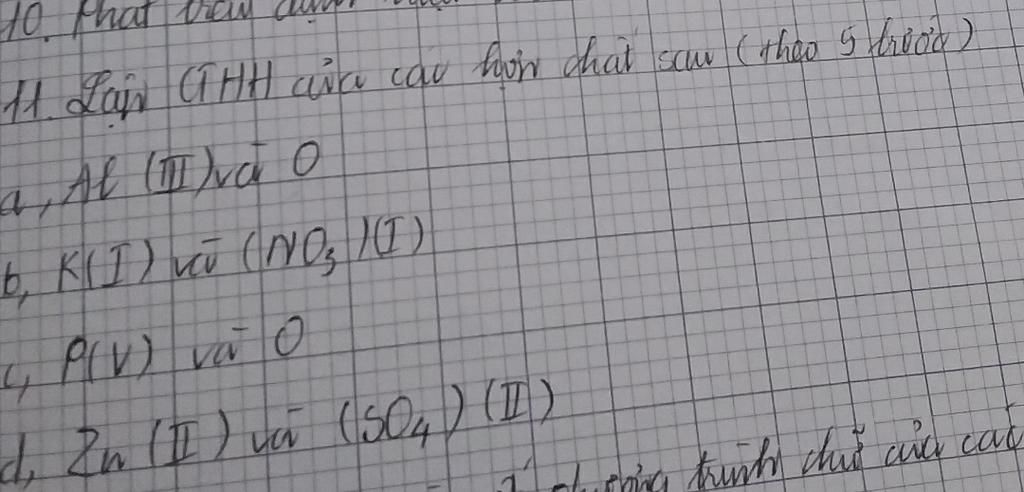 10. Phát
11. Lập CTHH của các hợp chất sau (theo 5 bước)
a, Al (III) và O
b, K(I) và (NO₃)(I)
c, P(V) và O
d, Zn (II) và (SO₄) (II)
trình chữ của các